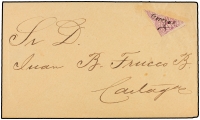 Sr D.
Juan B. Frucco B.
Cartago